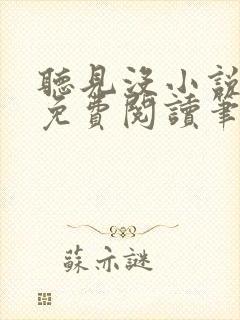 聽見沒小說
免費閱讀筆
蘇亦謎